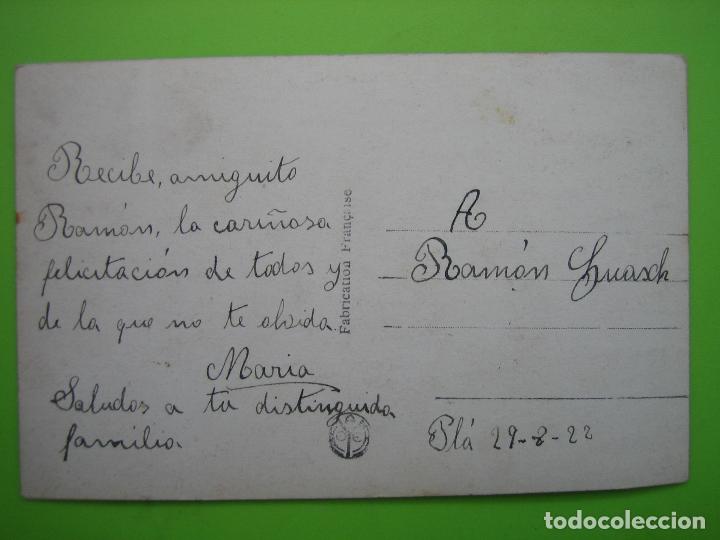 Recibe, amiguito
Ramón, la cariñosa
felicitación de todos y
de la que no te olvida.
Maria
Saludos a tu distinguida
familia.
Fabrication Française
A
Ramón Guasch
Plá 29-8-22
todocoleccion.net